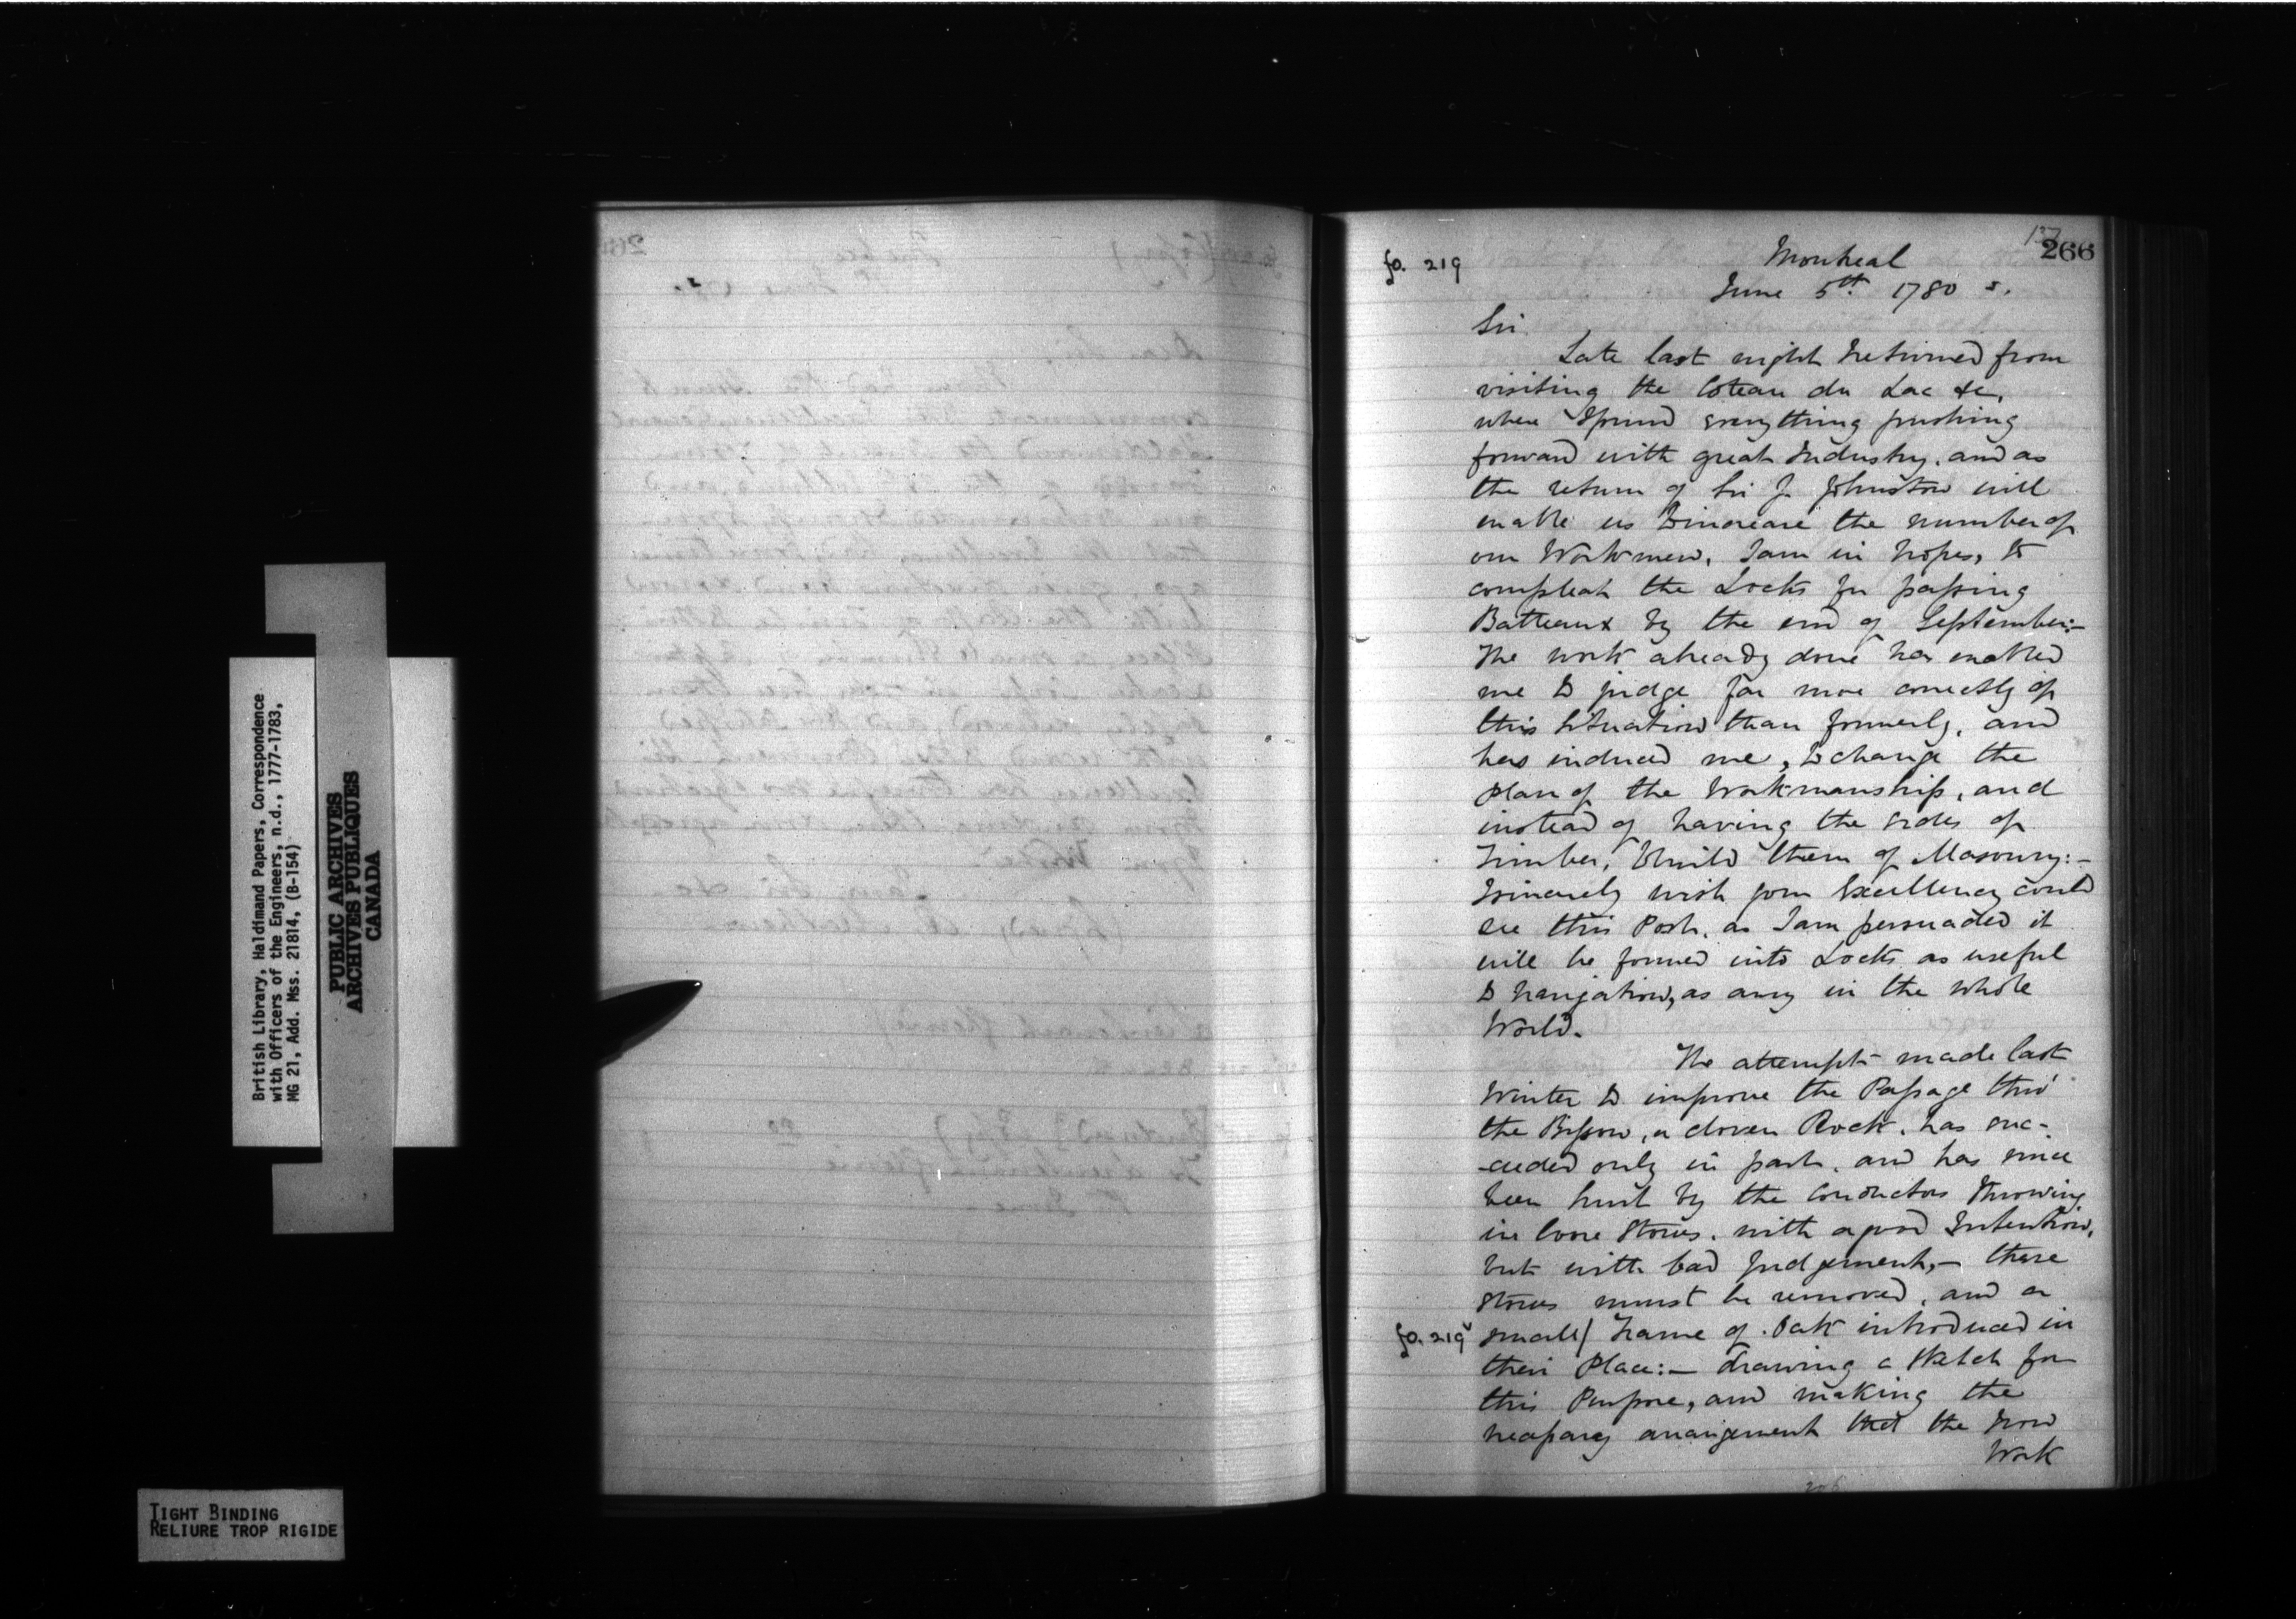 fo. 219
137
266
Montreal
June 5th. 1780 s.
Sir
Late last night I returned from
visiting the Coteau du Lac &c,
where I found everything pushing
forward with great Industry, and as
the return of Sir J. Johnston will
enable us to increase the number of
our Workmen, I am in hopes, to
compleat the Locks for passing
Batteaux by the end of September:—
The work already done has enabled
me to judge far more correctly of
this Situation than formerly, and
has induced me, to change the
Plan of the Workmanship, and
instead of having the sides of
Timber, to build them of Masonry:—
I sincerely wish your Excellency could
see this Post, as I am persuaded it
will be formed into Locks as useful
to Navigation, as any in the whole
World.
The attempt made last
Winter to improve the Passage thro'
the Buisson, a cloven Rock, has suc-
-ceeded only in part, and has since
been hurt by the Conductors throwing
in loose Stones, with a good Intention,
but with bad Judgement,— these
Stones must be removed, and a
fo. 219v small/ frame of Oak introduced in
their Place:— drawing a Sketch for
this Purpose, and making the
necessary arrangement that the Iron
Work
British Library, Haldimand Papers, Correspondence
with Officers of the Engineers, n.d., 1777-1783,
MG 21, Add. Mss. 21814, (B-154)
PUBLIC ARCHIVES
ARCHIVES PUBLIQUES
CANADA
TIGHT BINDING
RELIURE TROP RIGIDE